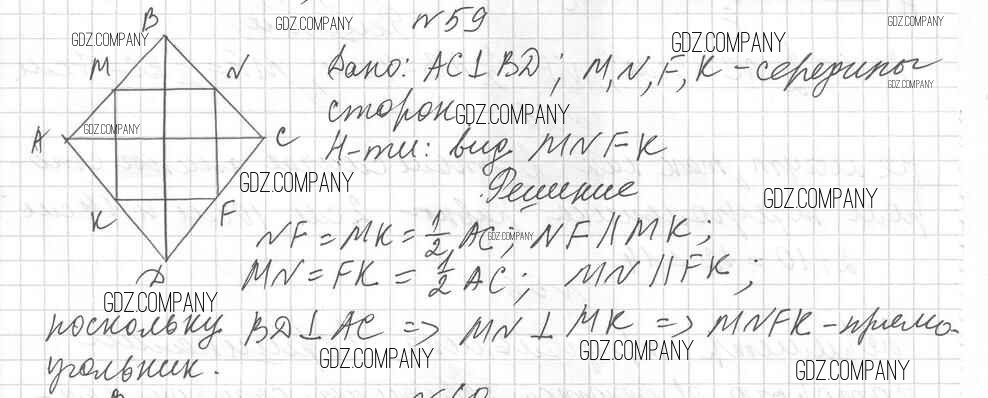 GDZ.COMPANY
GDZ.COMPANY
GDZ.COMPANY
GDZ.COMPANY
GDZ.COMPANY
GDZ.COMPANY
GDZ.COMPANY
GDZ.COMPANY
GDZ.COMPANY
GDZ.COMPANY
GDZ.COMPANY
GDZ.COMPANY
GDZ.COMPANY
GDZ.COMPANY
B
M N
A C
K F
D
№59
Дано: AC⊥BD; M,N,F,K-середины
сторон
Н-ти: вид MNFK
Решение
NF=MK=1/2 AC; NF∥MK;
MN=FK=1/2 AC; MN∥FK;
поскольку BD⊥AC => MN⊥MK => MNFK-прямо-
угольник.